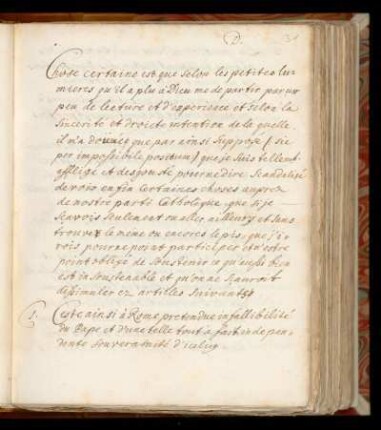 D. 31
Chose certaine est que selon les petites lu=
mieres qu'il a plu à Dieu me departir par un
peu de lecture et d'experience et selon la
sincerité et droicte intention de la quelle
il m'a douée que par ainsi supposé (sic
per impossibile positum) que je suis tellemt
affligé et despourveu pour ne dire Scandalizé
de voir enfin certaines choses aupres
de nostre parti Catholique, que si je
sçavois seulement ou aller ailleurs et sans
trouver le mème ou encores le pis, que j'i=
rois pour ne point participer et n'estre
point obligé de soustenir ce qu'enfin
est insoustenable et qu'on ne sçauroit
dissimuler ez articles suivants
1. C'est ainsi à Rome pretendue infallibilité
du Pape et d'une telle tout à fait indepen=
dente souveraineté d'iceluy